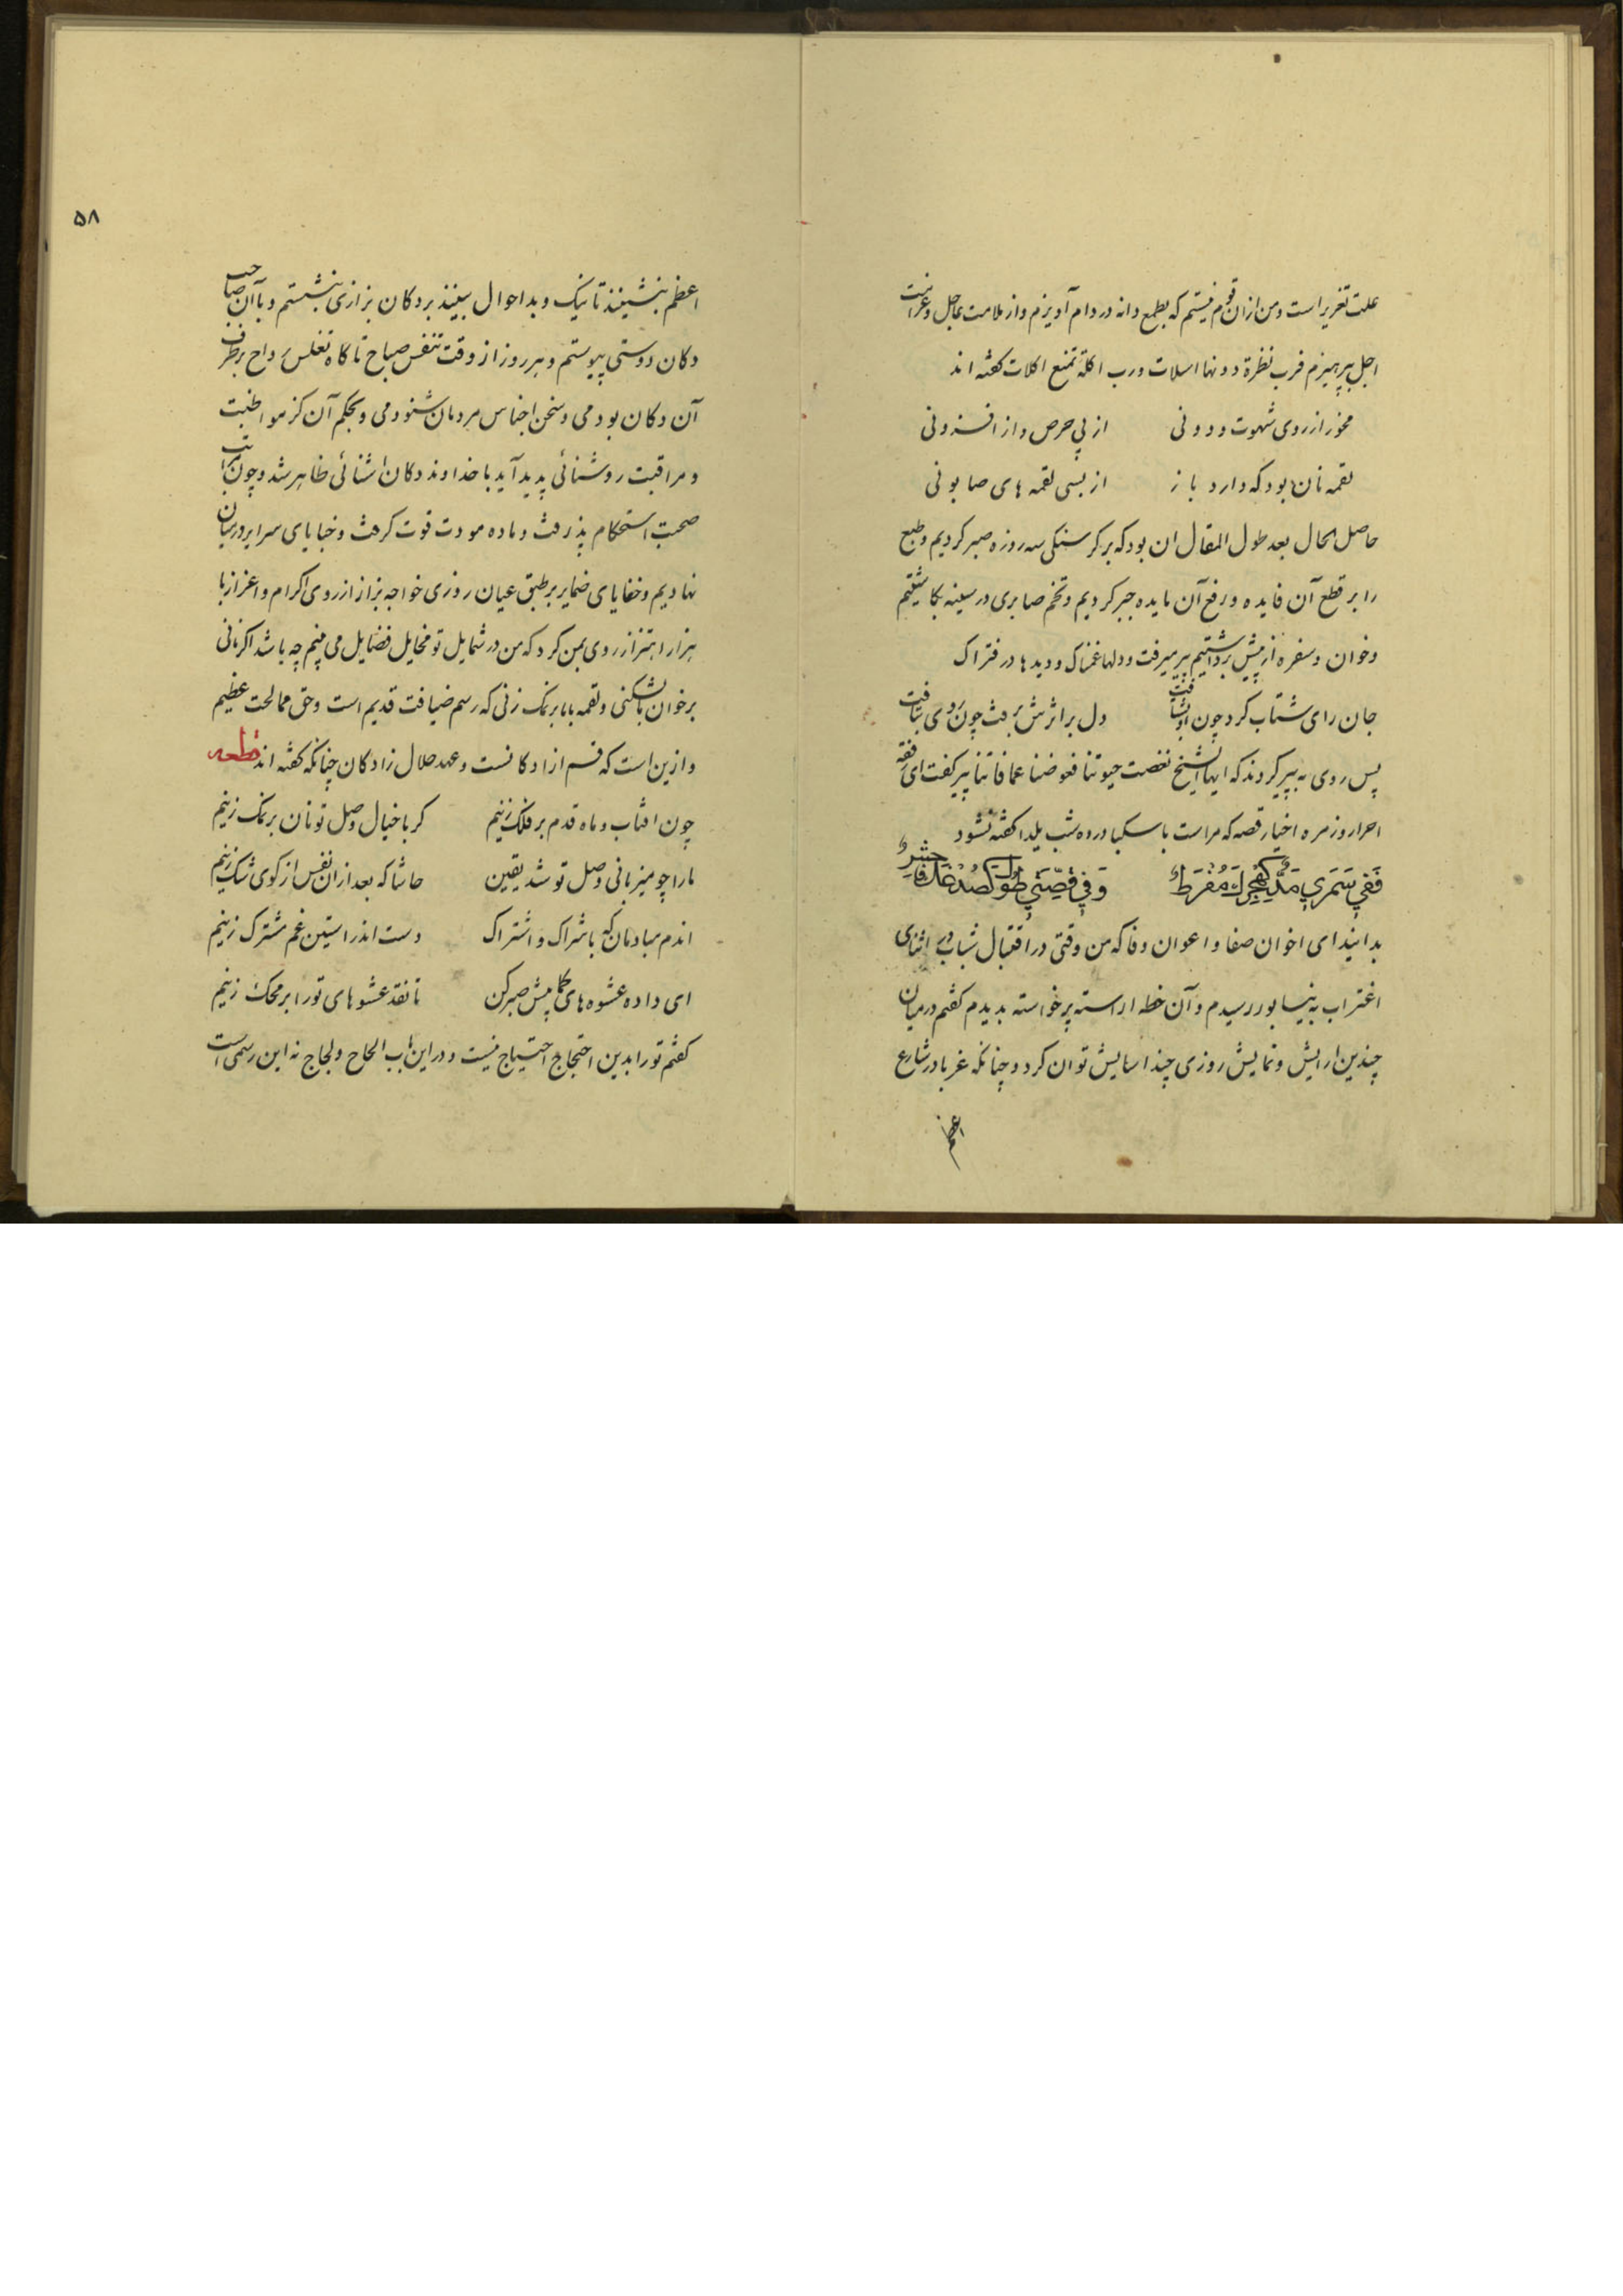 علت تغریر است و من از ان قوم نیستم که بطمع دانه در دام آویزم و از ملامت عاجل و غرامت
اجل بپرهیزم فرب نظرة دونها اسلات و رب اکلة تمنع اکلات گفته اند
مخور از روی شهوت و دونی از پی حرص و از افزونی
لقمه نان بود که دارد باز از بسی لقمه های صابونی
حاصل الحال بعد طول المقال ان بود که بر کرسنکی سه روزه صبر کردیم و طبع
را بر قطع آن فایده و رفع آن مایده جبر کردیم و تخم صابری در سینه بکاشتیم
و خوان و سفره از پیش برداشتیم پیر میرفت و دلها غمناک و دیدها در فتراک
جان رای شتاب کرد چون او بشتافت دل بر اثرش برفت چون روی بتافت
پس روی به پیر کردند که ایها الشیخ نغصت حیوتنا فعوضنا عما فاتنا پیر کفت ای رفقه
احرار و زمره اخیار قصه که مراست با سکبا در ده شب یلدا کفته نشود
فَفِی سَمَرِی مَدٌّ کَهَجْرِكَ مُفْرِطٌ وَفِی قِصَّتِی طُولٌ کَصُدْغِكَ فَاحِشٌ
بدانید ای اخوان صفا و اعوان وفا که من وقتی در اقتبال شباب در اثنای
اغتراب به نیسابور رسیدم و آن خطه اراسته پر خواسته بدیدم کفتم در میان
چندین ارایش و نمایش روزی چند اسایش توان کرد و چنانکه غربا در شارع
اعظم
۵۸
اعظم بنشینند تا نیک و بد احوال ببینند بر دکان بزازی بنشستم و با آن صاحب
دکان دوستی پیوستم و هر روز از وقت تنفس صباح تا کاه تغلس رواح بر طرف
آن دکان بودمی و سخن اجناس مردمان شنودمی و بحکم آن کز مواظبت
و مراقبت روشنائی پدید آید با خداوند دکان اشنائی ظاهر شد و چون اسباب
صحبت استحکام پذرفت و ماده مودت قوت کرفت و خبایای سرایر در میان
نهادیم و خفایای ضمایر بر طبق عیان روزی خواجه بزاز از روی اکرام و اعزاز با
هزار اهتزاز روی بمن کرد که من در شمایل تو مخایل فضایل می بینم چه باشد اکر نانی
بر خوان ما بشکنی و لقمه با ما بر نمک زنی که رسم ضیافت قدیم است و حق ممالحت عظیم
و ازین است که قسم ازادکانست و عهد حلال زادکان چنانکه کفته اند قطعه
چون افتاب و ماه قدم بر فلک زنیم کر با خیال وصل تو نان بر نمک زنیم
ما را چو میزبانی وصل تو شد یقین حاشا که بعد ازان نفس از کوی شک زنیم
اندم مبادمان که باشراک و اشتراک دست اندر استین غم مشترک زنیم
ای داده عشوه های کما پیش صبر کن تا نقد عشوهای تو را بر محک زنیم
کفتم تو را بدین احتجاج احتیاج نیست و در این باب الحاح و لجاج نه این رسمی است